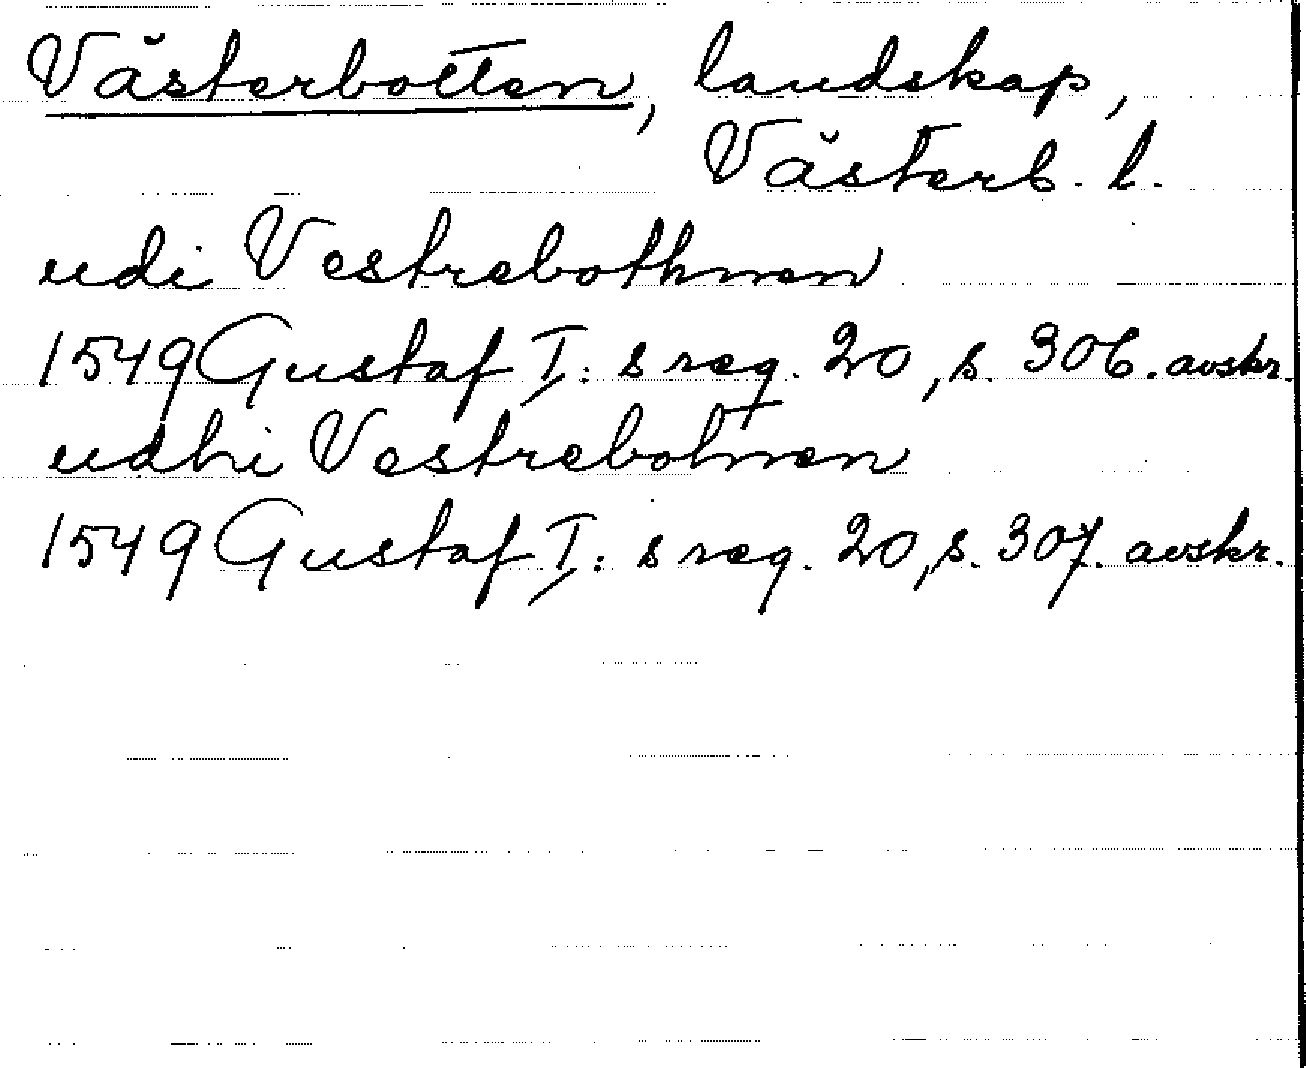 Västerbotten, landskap,
Västerb. l.
udi Vestrebothnen
1549 Gustaf I: s reg. 20, s. 306. avskr.
udhi Vestrebotnen
1549 Gustaf I: s reg. 20, s. 307. avskr.